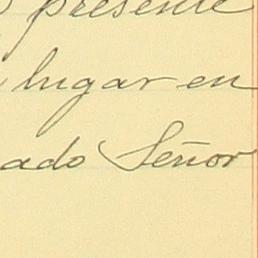 presente
lugar en
ado Señor